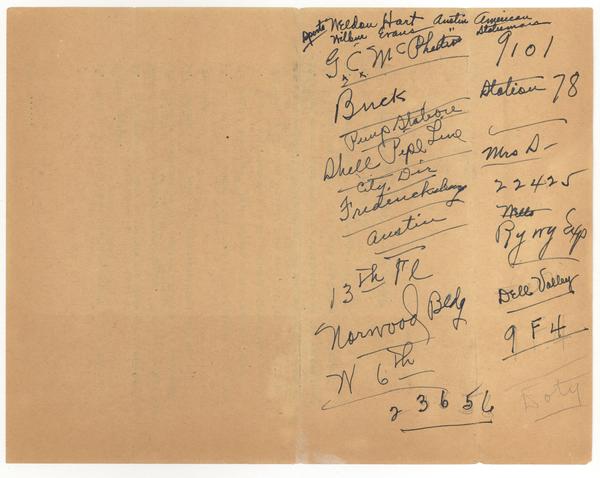 Sports Weldon Hart Austin American
Wilbur Evans Statesman
G. C. McPhatin 9101
Buck Station 78
Pump Station
Shell Pipe Line Mrs D-
City Dir 22425
Fredericksburg
Austin Ry Exp
13th Fl Dell Valley
Norwood Bldg 9F4
W 6th Doty
23656